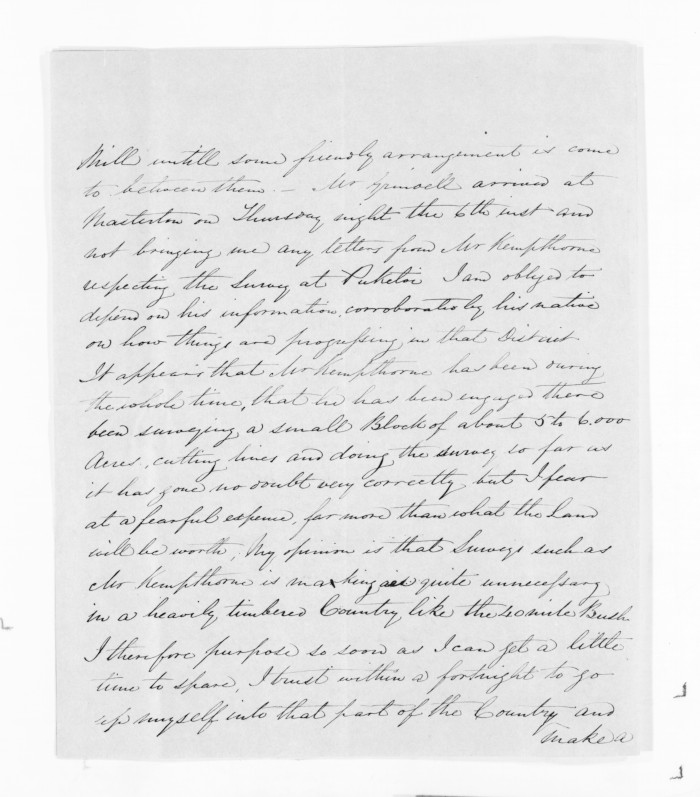 Mill untill some friendly arrangement is come
to between them. — Mr Grindell arrived at
Masterton on Thursday night the 6th inst and
not bringing me any letters from Mr Kempthorne
respecting the Survey at Puketoi I am obliged to
depend on his information, corroborated by his native
on how things are progressing in that District
It appears that Mr Kempthorne has been during
the whole time, that he has been engaged there
been surveying a small Block of about 5 to 6.000
Acres, cutting lines and doing the survey so far as
it has gone no doubt very correctly but I fear
at a fearful expense, far more than what the Land
will be worth, My opinion is that Surveys such as
Mr Kempthorne is making are quite unnecessary
in a heavily timbered Country like the 40 mile Bush
I therefore purpose so soon as I can get a little
time to spare, I trust within a fortnight to go
up myself into that part of the Country and
make a